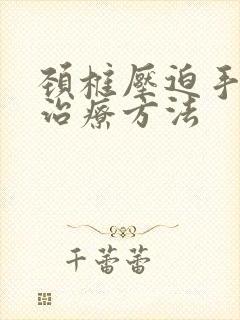 頸椎壓迫手
治療方法
千蕾蕾